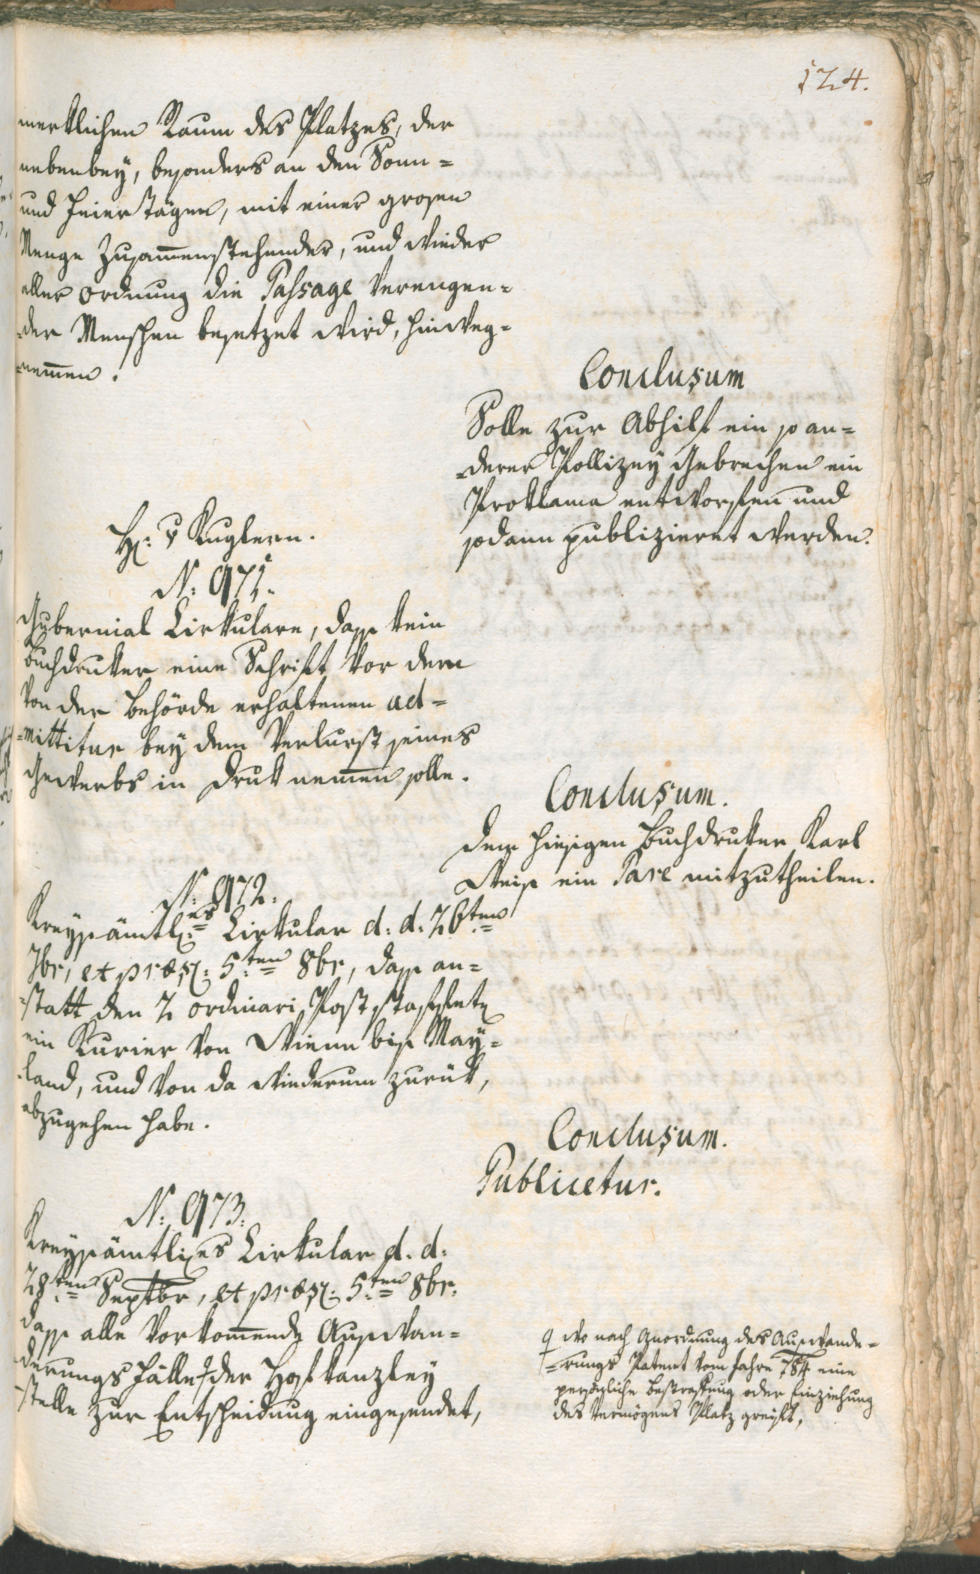 124.
merklichen Raum des Platzes, der
nebenbey, besonders an den Sonn=
und Feier tägen, mit einer grosen
Menge Zusam̄enstehender, und wieder
aller Ordnung die Passage verengen=
=der Menschen besetzet wird, hinweg=
=nem̄en.
Conclusum
Solle zur Abhilf ein so an=
=derer Pollizey Gebrechen ein
Proklama entworfen und
sodann publizieret werden.
H: v Kuglern.
N: 971.
Gubernial Cirkulare, dass kein
Buchdruker eine Schrift vor dem
von der Behörde erhaltenen ad=
=mittitur bey dem Verlurst seines
Gewerbs in Druk nem̄en solle.
Conclusum.
Dem hiesigen Buchdruker Karl
Weiss ein Pare mitzutheilen.
N: 972.
Kreysämtl:es Cirkular d: d: 26ten
7br, et præs: 5ten 8br, dass an=
=statt den 2 ordinari Post staffete
ein Kurier von Wienn bis May=
=land, und von da wiederum zurük,
abzugehen habe.
Conclusum.
Publicetur.
N: 973.
Kreysämtliches Cirkular d. d.
28ten Septbr, et præs: 5ten 8br.
dass alle vorkom̄ende Auswan=
=derungs Fälle der Hofkanzley
=stelle zur Entscheidung eingesendet,
wo nach Anordnung des Auswande=
=rungs Patent vom Jahre 784 eine
persöhnliche Bestraffung oder Einziehung
des Vermögens Platz greift,